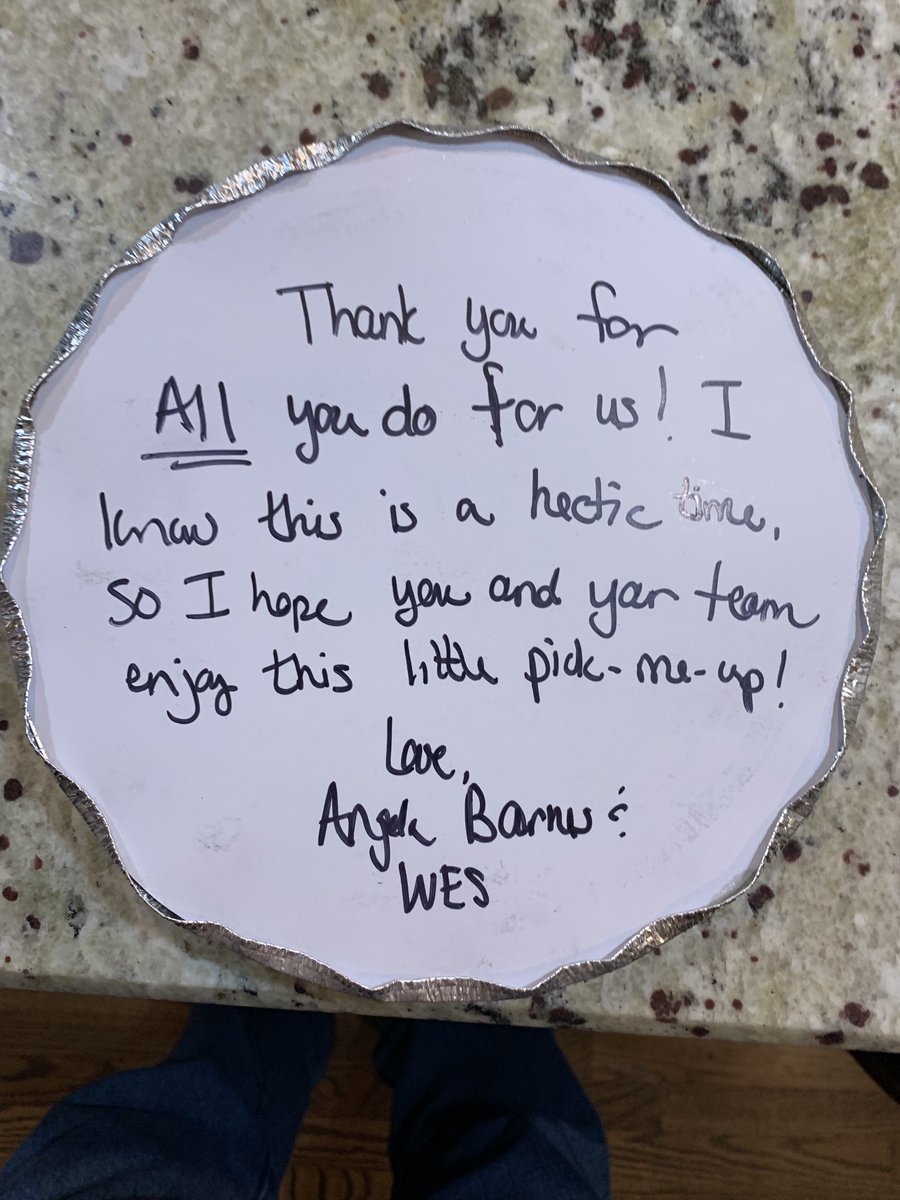 Thank you for
All you do for us! I
know this is a hectic time,
so I hope you and your team
enjoy this little pick-me-up!
Love,
Angela Barnes &
WES